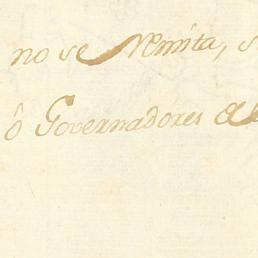 no se Remita, s
ô Governadores de